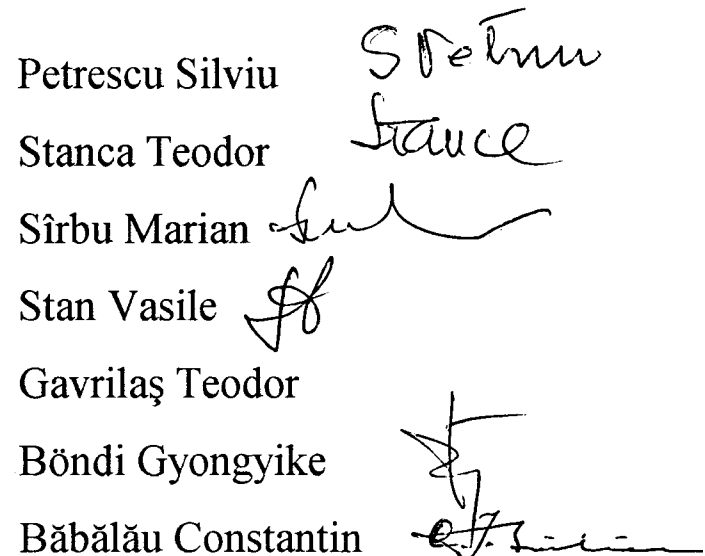 Petrescu Silviu
Stanca Teodor
Sîrbu Marian
Stan Vasile
Gavrilaş Teodor
Böndi Gyongyike
Băbălău Constantin